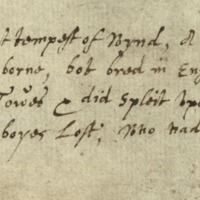 tempest of Wynd, A
borne, bot bred in En
Towes & did Split vp
boyes Lost, Who had